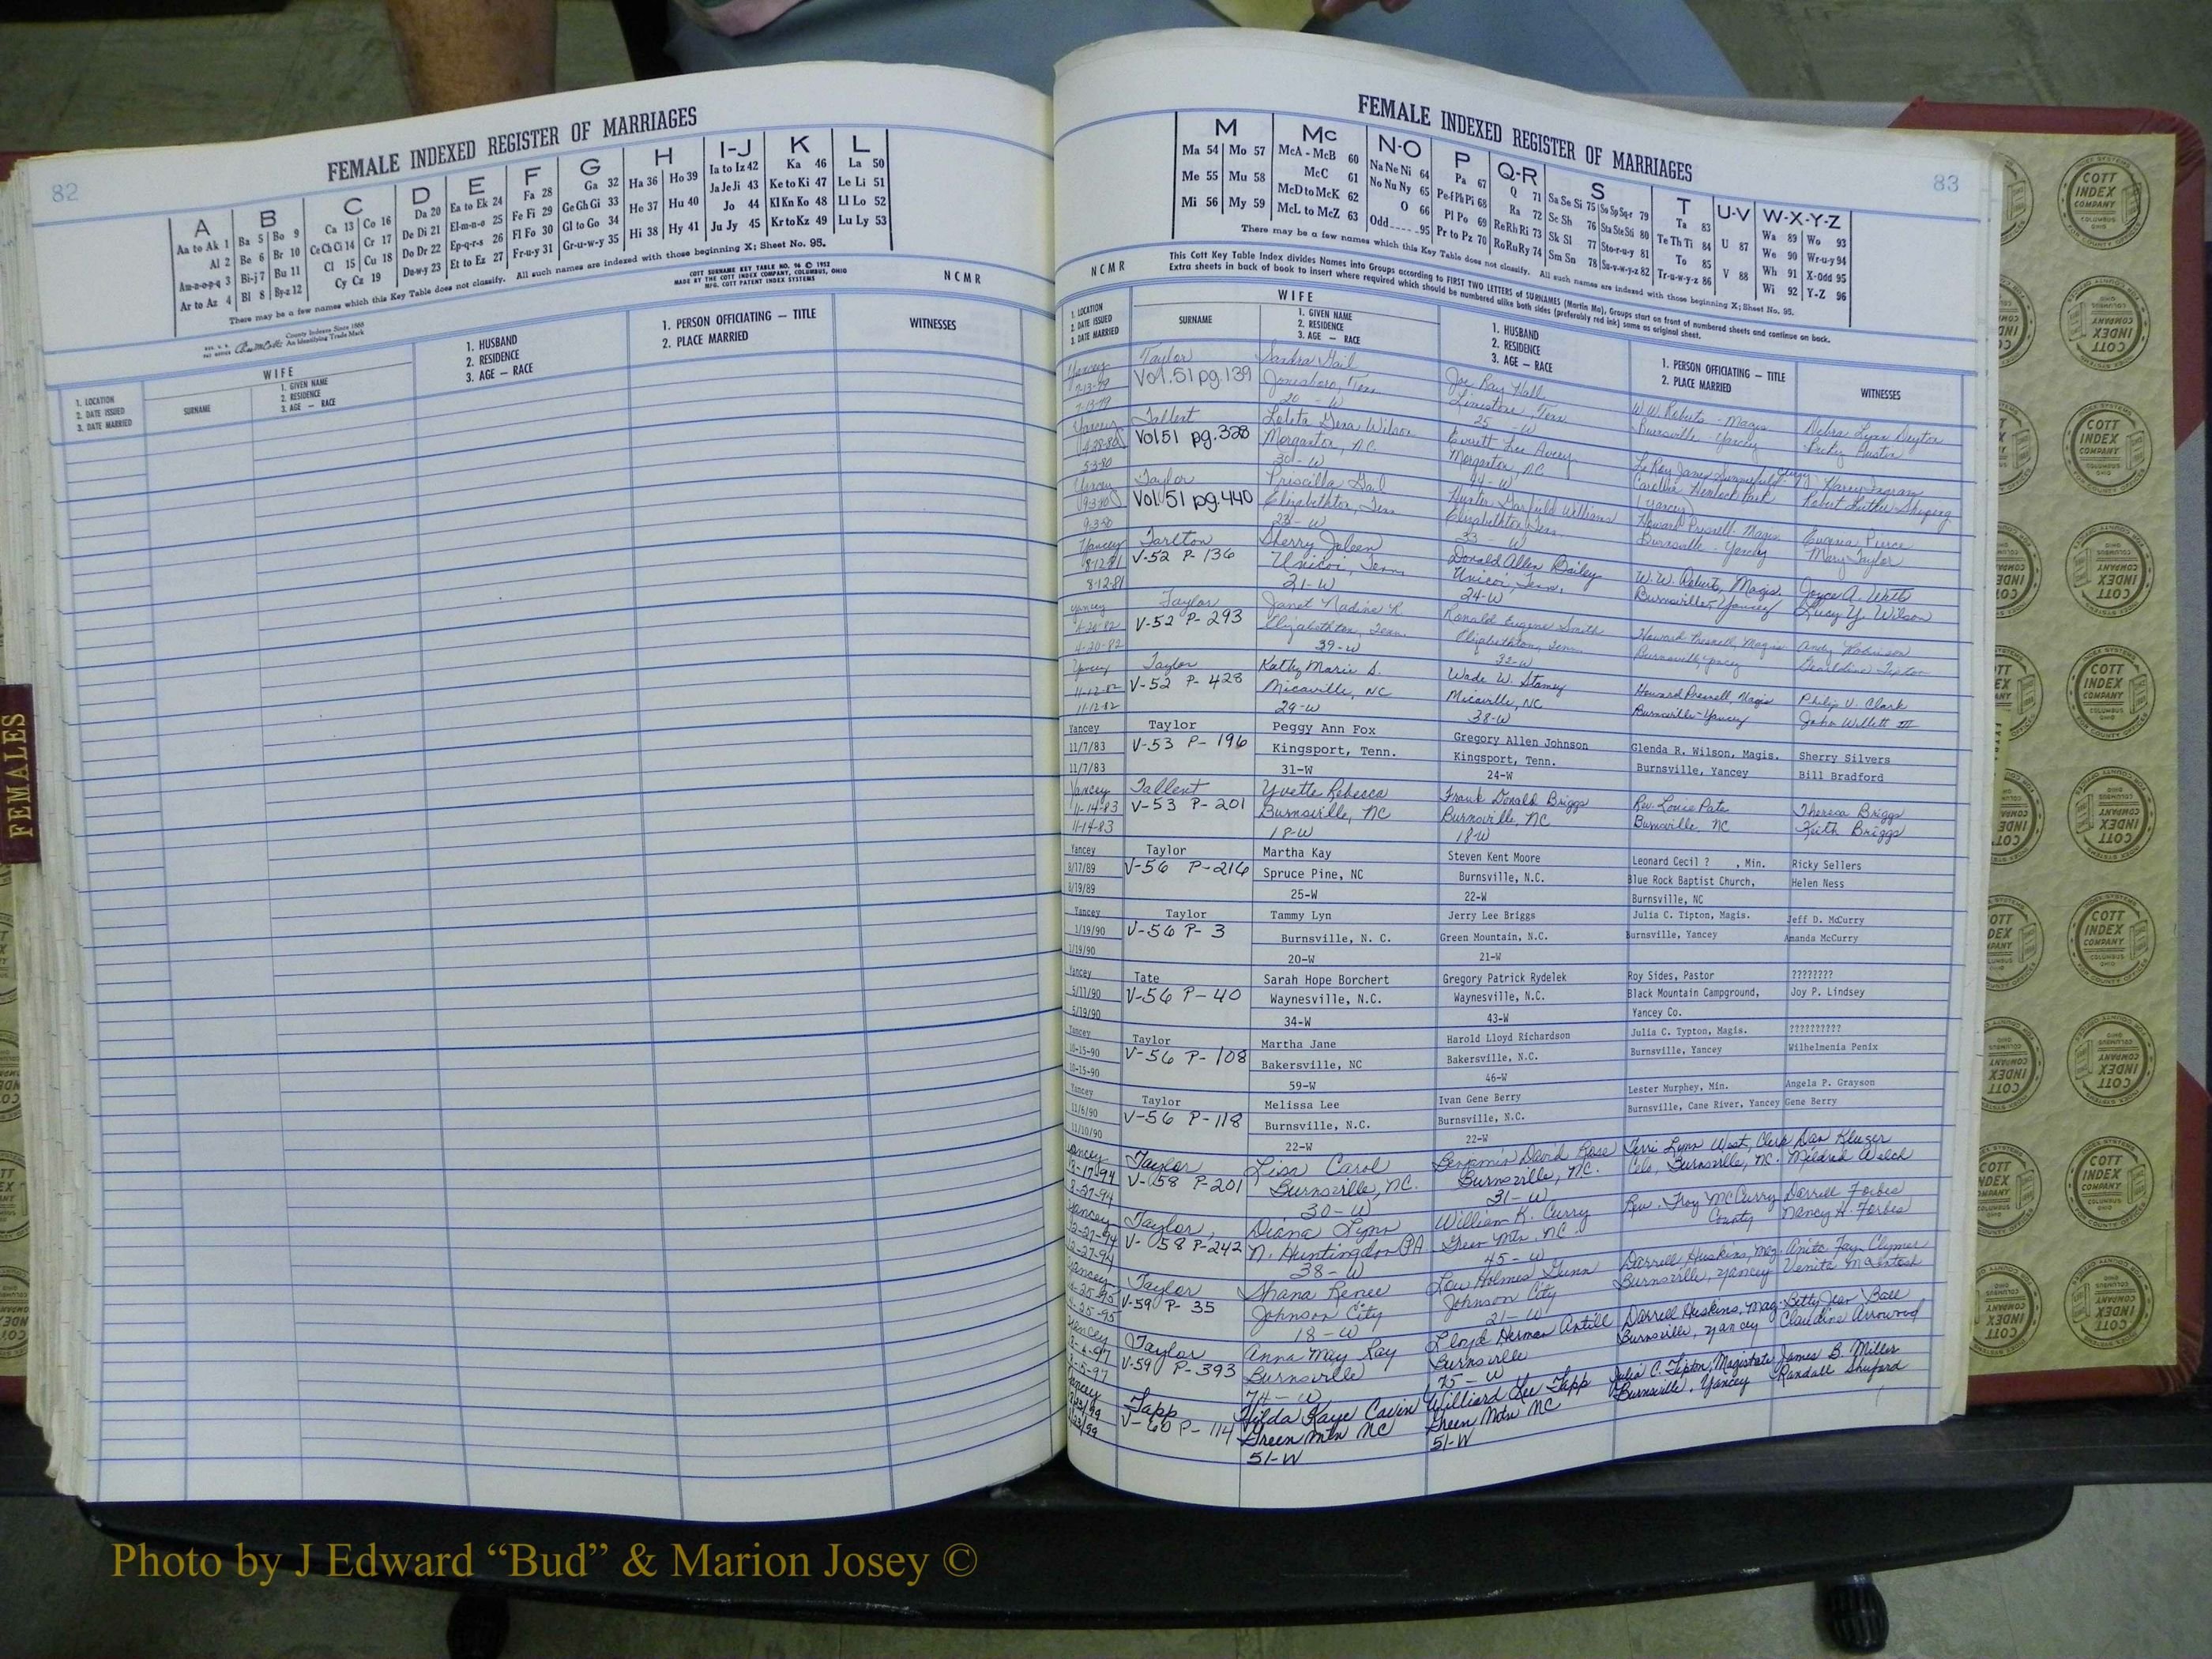 82
FEMALE INDEXED REGISTER OF MARRIAGES
A B C D E F G H I-J K L
Aa to Ak 1 Ba 5 Bo 9 Ca 13 Co 16 Da 20 Ea to Ek 24 Fa 28 Ga 32 Ha 36 Ho 39 Ia to Iz 42 Ka 46 La 50
Al 2 Be 6 Br 10 Ce Ch Ci 14 Cr 17 De Di 21 El-m-n-o 25 Fe Fi 29 Ge Gh Gi 33 He 37 Hu 40 Ja Je Ji 43 Ke to Ki 47 Le Li 51
Am-n-o-p-q 3 Bi-j 7 Bu 11 Cl 15 Cu 18 Do Dr 22 Ep-q-r-s 26 Fl Fo 30 Gl to Go 34 Hi 38 Hy 41 Jo 44 Kl Kn Ko 48 Ll Lo 52
Ar to Az 4 Bl 8 By-z 12 Cy Cz 19 Du-w-y 23 Et to Ez 27 Fr-u-y 31 Gr-u-w-y 35 Ju Jy 45 Kr to Kz 49 Lu Ly 53
There may be a few names which this Key Table does not classify. All such names are indexed with those beginning X; Sheet No. 95.
County Indexes Since 1888
An Identifying Trade Mark
COTT SURNAME KEY TABLE NO. 96 © 1952
MADE BY THE COTT INDEX COMPANY, COLUMBUS, OHIO
MFG. COTT PATENT INDEX SYSTEMS
NCMR
1. LOCATION
2. DATE ISSUED
3. DATE MARRIED
WIFE
SURNAME
1. GIVEN NAME
2. RESIDENCE
3. AGE — RACE
1. HUSBAND
2. RESIDENCE
3. AGE — RACE
1. PERSON OFFICIATING — TITLE
2. PLACE MARRIED
WITNESSES
FEMALES
83
FEMALE INDEXED REGISTER OF MARRIAGES
M Mc N-O P Q-R S T U-V W-X-Y-Z
Ma 54 Mo 57 McA - McB 60 Na Ne Ni 64 Pa 67 Q 71 Sa Se Si 75 So Sp Sq-r 79 Ta 83 U 87 Wa 89 Wo 93
Me 55 Mu 58 McC 61 No Nu Ny 65 Pe-f Ph Pi 68 Ra 72 Sc Sh 76 Sta Ste Sti 80 Te Th Ti 84 V 88 We 90 Wr-u-y 94
Mi 56 My 59 McD to McK 62 O 66 Pl Po 69 Re Rh Ri 73 Sk Sl 77 Sto-r-u-y 81 To 85 Wh 91 X-Odd 95
McL to McZ 63 Odd 95 Pr to Pz 70 Ro Ru Ry 74 Sm Sn 78 Su-v-w-y-z 82 Tr-u-w-y-z 86 Wi 92 Y-Z 96
There may be a few names which this Key Table does not classify. All such names are indexed with those beginning X; Sheet No. 95.
NCMR
This Cott Key Table Index divides Names into Groups according to FIRST TWO LETTERS of SURNAMES (Martin Ma). Groups start on front of numbered sheets and continue on back.
Extra sheets in back of book to insert where required which should be numbered alike both sides (preferably red ink) same as original sheet.
1. LOCATION
2. DATE ISSUED
3. DATE MARRIED
WIFE
SURNAME
1. GIVEN NAME
2. RESIDENCE
3. AGE — RACE
1. HUSBAND
2. RESIDENCE
3. AGE — RACE
1. PERSON OFFICIATING — TITLE
2. PLACE MARRIED
WITNESSES
Yancey Taylor Sandra Gail Joe Ray Hall W.W. Roberts - Magis Debra Lynn Deyton
7-13-79 Vol. 51 pg. 139 Jonesboro, Tenn Limestone Tenn Burnsville - Yancey
7-13-79 20 - W 25 - W
Yancey Tallent Loleta Gena Wilson Everett Lee Avery
4-28-80 Vol 51 pg. 328 Morganton, N.C. Morganton, NC
5-3-80 30 - W 44 - W
Yancey Taylor Priscilla Gail Hunter Garfield Williams Howard Presnell - Magis Eugenia Pierce
9-3-80 Vol. 51 pg. 440 Elizabethton, Tenn Elizabethton, Tenn. Burnsville - Yancey Mary Taylor
9-3-80 23 - W 33 - W
Yancey Tarlton Sherry Joleen Donald Allen Bailey W.W. Roberts, Magis. Joyce A. Watts
8-12-81 V-52 P- 136 Unicoi, Tenn Unicoi, Tenn. Burnsville-Yancey Lucy Y. Wilson
8-12-81 21-W 24-W
Yancey Taylor Janet Nadine R. Ronald Eugene Smith Howard Presnell, Magis Andy Robinson
4-20-82 V-52 P- 293 Elizabethton, Tenn. Elizabethton, Tenn. Burnsville Yancey Geraldine Tipton
4-20-82 39-W 32-W
Yancey Taylor Kathy Marie S. Wade W. Stamey Howard Presnell, Magis Philip V. Clark
11-12-82 V-52 P- 428 Micaville, NC Micaville, NC Burnsville-Yancey John Willett III
11-12-82 29-W 38-W
Yancey Taylor Peggy Ann Fox Gregory Allen Johnson Glenda R. Wilson, Magis. Sherry Silvers
11/7/83 V-53 P- 196 Kingsport, Tenn. Kingsport, Tenn. Burnsville, Yancey Bill Bradford
11/7/83 31-W 24-W
Yancey Tallent Yvette Rebecca Frank Donald Briggs Rev. Louie Pate Theresa Briggs
11-14-83 V-53 P- 201 Burnsville, NC Burnsville, NC Burnsville, NC Keith Briggs
11-14-83 18-W 18-W
Yancey Taylor Martha Kay Steven Kent Moore Leonard Cecil ? , Min. Ricky Sellers
8/17/89 V-56 P-216 Spruce Pine, NC Burnsville, N.C. Blue Rock Baptist Church, Helen Ness
8/19/89 25-W 22-W Burnsville, NC
Yancey Taylor Tammy Lyn Jerry Lee Briggs Julia C. Tipton, Magis. Jeff D. McCurry
1/19/90 V-56 P- 3 Burnsville, N. C. Green Mountain, N.C. Burnsville, Yancey Amanda McCurry
1/19/90 20-W 21-W
Yancey Tate Sarah Hope Borchert Gregory Patrick Rydelek Roy Sides, Pastor ????????
5/11/90 V-56 P- 40 Waynesville, N.C. Waynesville, N.C. Black Mountain Campground, Joy P. Lindsey
5/19/90 34-W 43-W Yancey Co.
Yancey Taylor Martha Jane Harold Lloyd Richardson Julia C. Typton, Magis. ??????????
10-15-90 V-56 P- 108 Bakersville, NC Bakersville, N.C. Burnsville, Yancey Wilhelmenia Penix
10-15-90 59-W 46-W
Yancey Taylor Melissa Lee Ivan Gene Berry Lester Murphey, Min. Angela P. Grayson
11/6/90 V-56 P- 118 Burnsville, N.C. Burnsville, N.C. Burnsville, Cane River, Yancey Gene Berry
11/10/90 22-W 22-W
Yancey Taylor Lisa Carol Benjamin David Rose Terri Lynn West, Clerk Dan Kluger
8-17-94 V-58 P-201 Burnsville, NC. Burnsville, NC. Burnsville, NC. Mildred Welch
8-27-94 30-W 31-W
Yancey Taylor, Diana Lynn William K. Curry Rev. Troy McCurry Darrell Forbes
12-27-94 V- 58 P-242 N. Huntingdon PA Green Mtn. NC. County Nancy H. Forbes
12-27-94 38-W 45-W
Yancey Taylor Shana Renee Lou Holmes Gunn Darrell Huskins, Mag. Anita Faye Clymer
4-25-95 V-59 P- 35 Johnson City Johnson City Burnsville, Yancey Venita McIntosh
4-25-95 18-W 21-W
Yancey Taylor Anna May Ray Lloyd Herman Antill Darrell Huskins, Mag. Betty Jean Ball
V-59 P-393 Burnsville Burnsville Burnsville, Yancey Claudine Arrowood
74-W 75-W
Yancey Tapp Hilda Kaye Cavin Williard Lee Tapp Julia C. Tipton, Magistrate James B. Miller
V-60 P- 114 Green Mtn NC Green Mtn NC Burnsville, Yancey Randall Shuford
51-W 51-W
COTT
INDEX
COMPANY
COLUMBUS
OHIO
Photo by J Edward “Bud” & Marion Josey ©